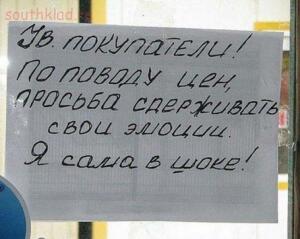 southklad.
Ув. ПОКУПАТЕЛИ!
По поводу цен,
просьба сдерживать
свои эмоции.
Я сама в шоке!